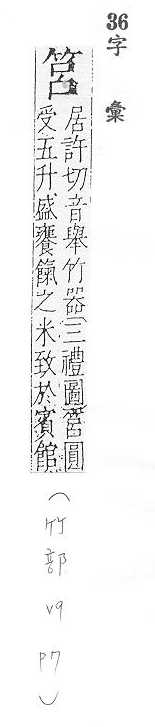 36字彙
筥
居許切音舉竹器三禮圖筥圓
受五升盛饔餼之米致於賓館
(竹部 v9 P7)